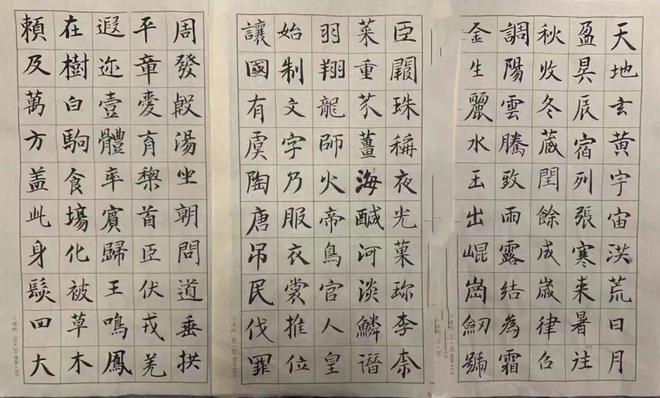 天地玄黃宇宙洪荒日月
盈昃辰宿列張寒来暑往
秋收冬藏閏餘成歲律吕
調陽雲騰致雨露結為霜
金生麗水玉出崐崗劒號
巨闕珠稱夜光菓珎李柰
菜重芥薑海鹹河淡鱗潛
羽翔龍師火帝鳥官人皇
始制文字乃服衣裳推位
讓國有虞陶唐吊民伐罪
周發殷湯坐朝問道垂拱
平章愛育黎首臣伏戎羌
遐迩壹體率賓歸王鳴鳳
在樹白駒食場化被草木
頼及萬方盖此身髮四大